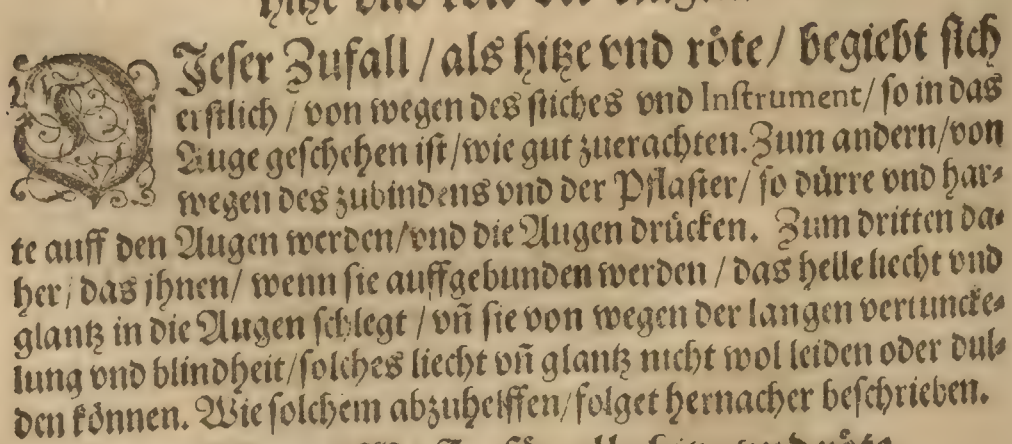 DIeser Zufall / als hitze vnd röte / begiebt sich
erstlich / von wegen des stiches vnd Instrument / so in das
Auge geschehen ist / wie gut zuerachten. Zum andern / von
wegen des zubindens vnd der Pflaster / so dürre vnd har⸗
te auff den Augen werden / vnd die Augen drücken. Zum dritten da⸗
her / das jhnen / wenn sie auffgebunden werden / das helle liecht vnd
glantz in die Augen schlegt / vñ sie von wegen der langen vertuncke⸗
lung vnd blindheit / solches liecht vñ glantz nicht wol leiden oder dul⸗
den können. Wie solchem abzuhelffen / folget hernacher beschrieben.